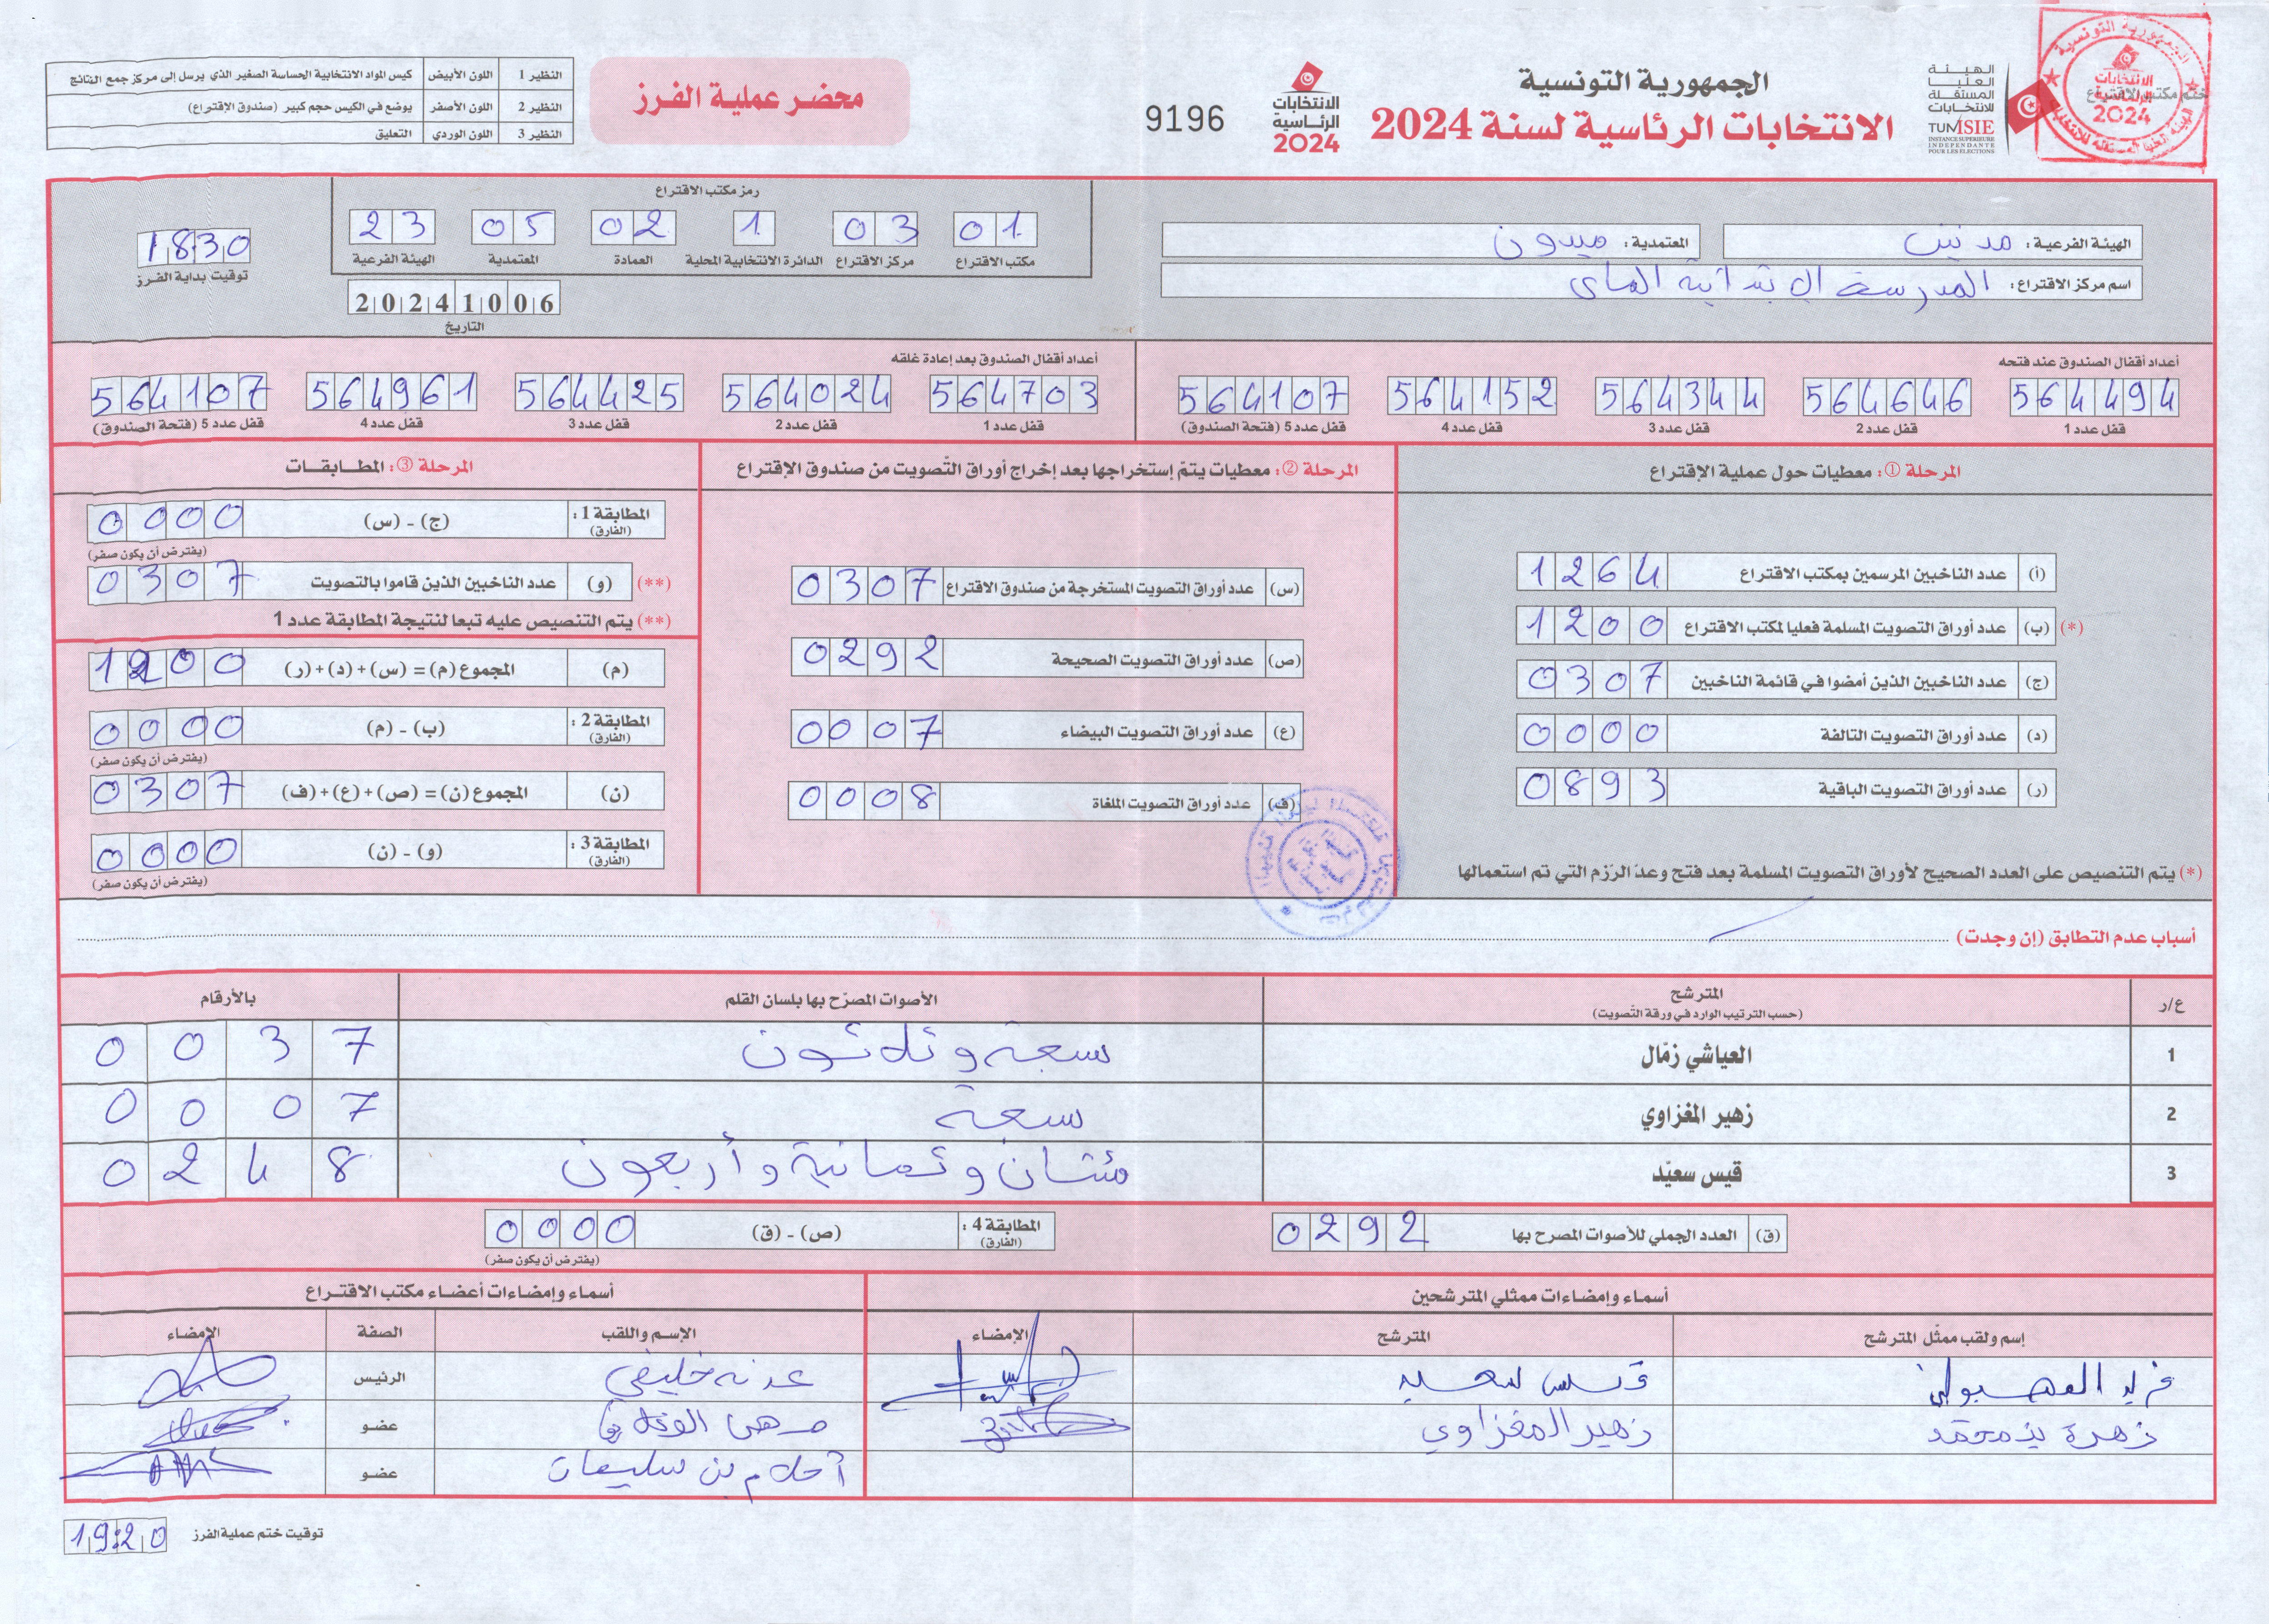 الجمهورية التونسية
الانتخابات الرئاسية لسنة 2024
الهيئة العليا المستقلة للانتخابات
TUNISIE
INSTANCE SUPERIEURE INDEPENDANTE POUR LES ÉLECTIONS
ختم مكتب الاقتراع
الانتخابات الرئاسية 2024
9196
محضر عملية الفرز
النظير 1 اللون الأبيض كيس المواد الانتخابية الحساسة الصغير الذي يرسل إلى مركز جمع النتائج
النظير 2 اللون الأصفر يوضع في الكيس حجم كبير (صندوق الإقتراع)
النظير 3 اللون الوردي التعليق
الهيئة الفرعية: مدنين
المعتمدية: ميدون
اسم مركز الاقتراع: المدرسة الابتدائية الماي
رمز مكتب الاقتراع
01 03 1 02 05 23
مكتب الاقتراع مركز الاقتراع الدائرة الانتخابية المحلية العمادة المعتمدية الهيئة الفرعية
20241006
التاريخ
1830
توقيت بداية الفرز
أعداد أقفال الصندوق عند فتحه
564494 564646 564344 564152 564107
قفل عدد 1 قفل عدد 2 قفل عدد 3 قفل عدد 4 قفل عدد 5 (فتحة الصندوق)
أعداد أقفال الصندوق بعد إعادة غلقه
564703 564024 564425 564961 564107
قفل عدد 1 قفل عدد 2 قفل عدد 3 قفل عدد 4 قفل عدد 5 (فتحة الصندوق)
المرحلة ①: معطيات حول عملية الإقتراع
(أ) عدد الناخبين المرسمين بمكتب الاقتراع 1264
(*) (ب) عدد أوراق التصويت المسلمة فعليا لمكتب الاقتراع 1200
(ج) عدد الناخبين الذين أمضوا في قائمة الناخبين 0307
(د) عدد أوراق التصويت التالفة 0000
(ر) عدد أوراق التصويت الباقية 0893
(*) يتم التنصيص على العدد الصحيح لأوراق التصويت المسلمة بعد فتح وعدّ الرّزم التي تم استعمالها
المرحلة ②: معطيات يتمّ إستخراجها بعد إخراج أوراق التّصويت من صندوق الإقتراع
(س) عدد أوراق التصويت المستخرجة من صندوق الاقتراع 0307
(ص) عدد أوراق التصويت الصحيحة 0292
(ع) عدد أوراق التصويت البيضاء 0007
(ف) عدد أوراق التصويت الملغاة 0008
المرحلة ③: المطابقات
المطابقة 1: (الفارق) (ج) - (س) 0000
(يفترض أن يكون صفر)
(**) (و) عدد الناخبين الذين قاموا بالتصويت 0307
(**) يتم التنصيص عليه تبعا لنتيجة المطابقة عدد 1
(م) المجموع (م) = (س) + (د) + (ر) 1200
المطابقة 2: (الفارق) (ب) - (م) 0000
(يفترض أن يكون صفر)
(ن) المجموع (ن) = (ص) + (ع) + (ف) 0307
المطابقة 3: (الفارق) (و) - (ن) 0000
(يفترض أن يكون صفر)
أسباب عدم التطابق (إن وجدت)
ع/ر المترشح (حسب الترتيب الوارد في ورقة التّصويت) الأصوات المصرّح بها بلسان القلم بالأرقام
1 العياشي زمّال سبعة وثلاثون 0037
2 زهير المغزاوي سبعة 0007
3 قيس سعيّد مئتان وثمانية وأربعون 0248
(ق) العدد الجملي للأصوات المصرح بها 0292
المطابقة 4: (الفارق) (ص) - (ق) 0000
(يفترض أن يكون صفر)
أسماء وإمضاءات ممثلي المترشحين
إسم ولقب ممثّل المترشح المترشح الإمضاء
فريد قيس سعيد
زهرة بن محمد زهير المغزاوي
أسماء وإمضاءات أعضاء مكتب الاقتراع
الإسم واللقب الصفة الإمضاء
خليفي الرئيس
عضو
أحلام بن سليمان عضو
توقيت ختم عملية الفرز 19:20